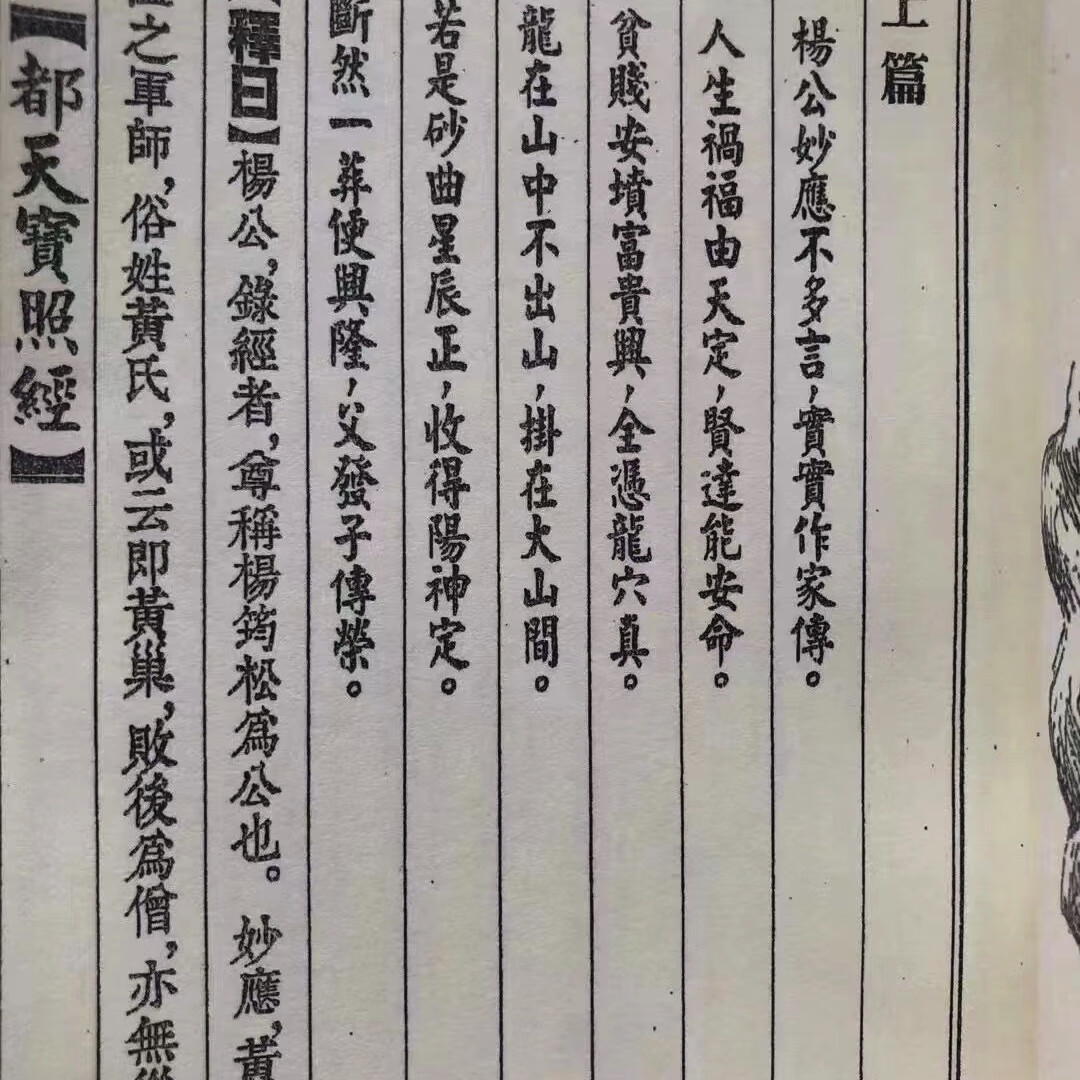 上篇
楊公妙應不多言，實實作家傳。
人生禍福由天定，賢達能安命。
貧賤安墳富貴興，全憑龍穴真。
龍在山中不出山，掛在大山間。
若是砂曲星辰正，收得陽神定。
斷然一葬便興隆，父發子傳榮。
釋曰】楊公，錄經者，尊稱楊筠松爲公也。妙應，黃
之軍師，俗姓黃氏，或云即黃巢，敗後爲僧，亦無
【都天寶照經】